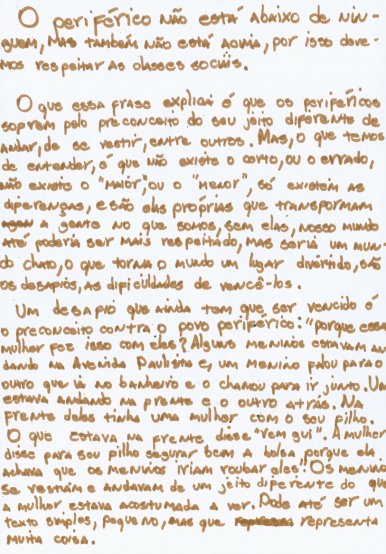 O periférico não está abaixo de nin-
guem, mas também não está acima, por isso deve-
mos respeitar as classes sociais.
O que essa frase explica é que os periféricos
sofrem pelo preconceito do seu jeito diferente de
andar, de se vestir, entre outros. Mas, o que temos
de entender, é que não existe o certo, ou o errado,
não existe o "maior", ou o "menor", só existem as
diferenças, e são elas próprias que transformam
a gente no que somos, sem elas, nosso mundo
até poderia ser mais respeitado, mas seria um mun-
do chato, o que torna o mundo um lugar divertido, são
os desafios, as dificuldades de vencê-los.
Um desafio que ainda tem que ser vencido é
o preconceito contra o povo periférico: "porque essa
mulher fez isso com eles? Alguns meninos estavam an-
dando na Avenida Paulista e, um menino falou para o
outro que ia no banheiro e o chamou para ir junto. Um
estava andando na frente e o outro atrás. Na
frente deles tinha uma mulher com o seu filho.
O que estava na frente disse "vem gui". A mulher
disse para seu filho segurar bem a bolsa, porque ela
achava que os meninos iriam roubar eles!! Os meninos
se vestiam e andavam de um jeito diferente do que
a mulher estava acostumada a ver. Pode até ser um
texto simples, pequeno, mas que representa
muita coisa.